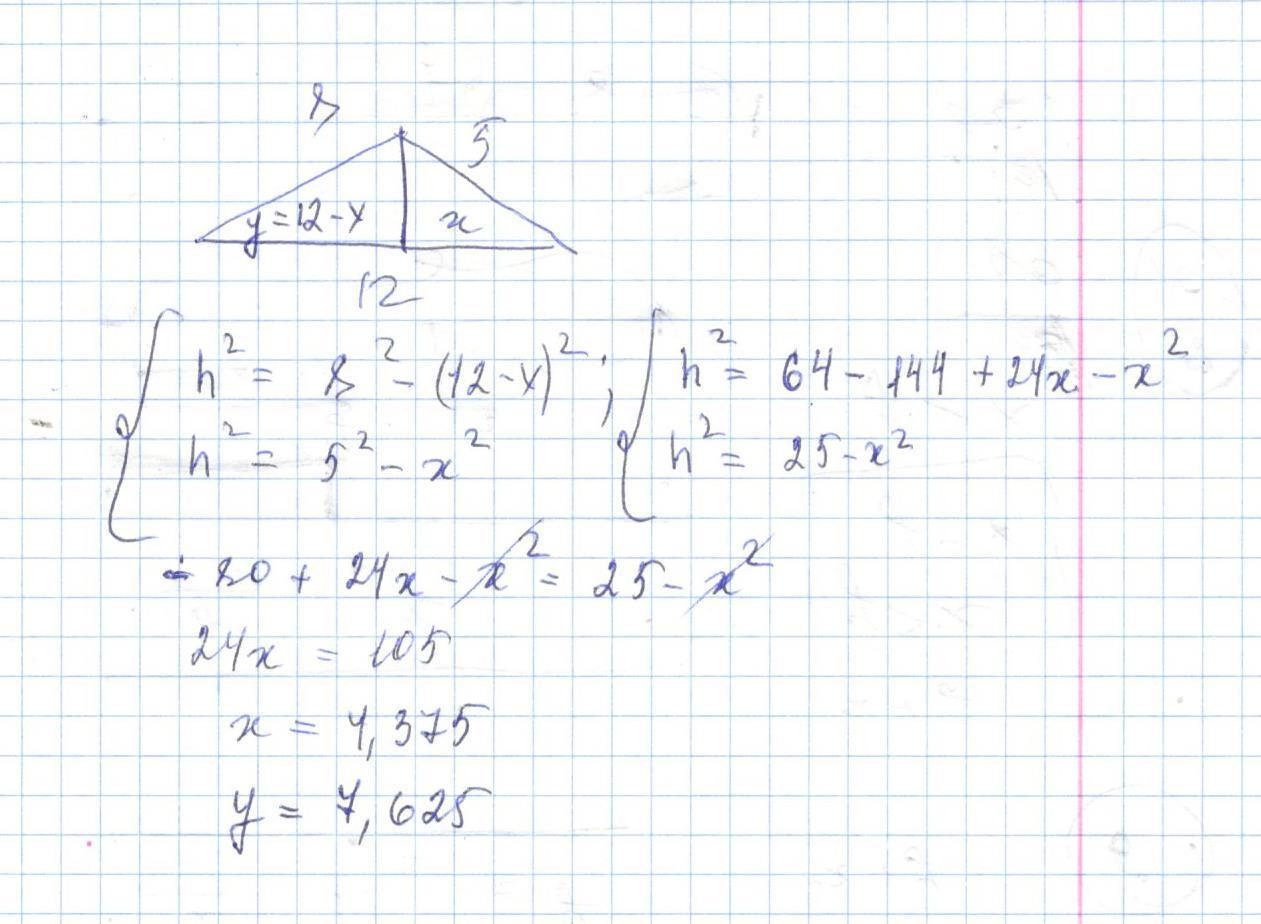 8
5
y=12-x
x
12
h² = 8² - (12-x)² ; h² = 64 - 144 + 24x - x²
h² = 5² - x² h² = 25 - x²
- 80 + 24x - x² = 25 - x²
24x = 105
x = 4,375
y = 7,625